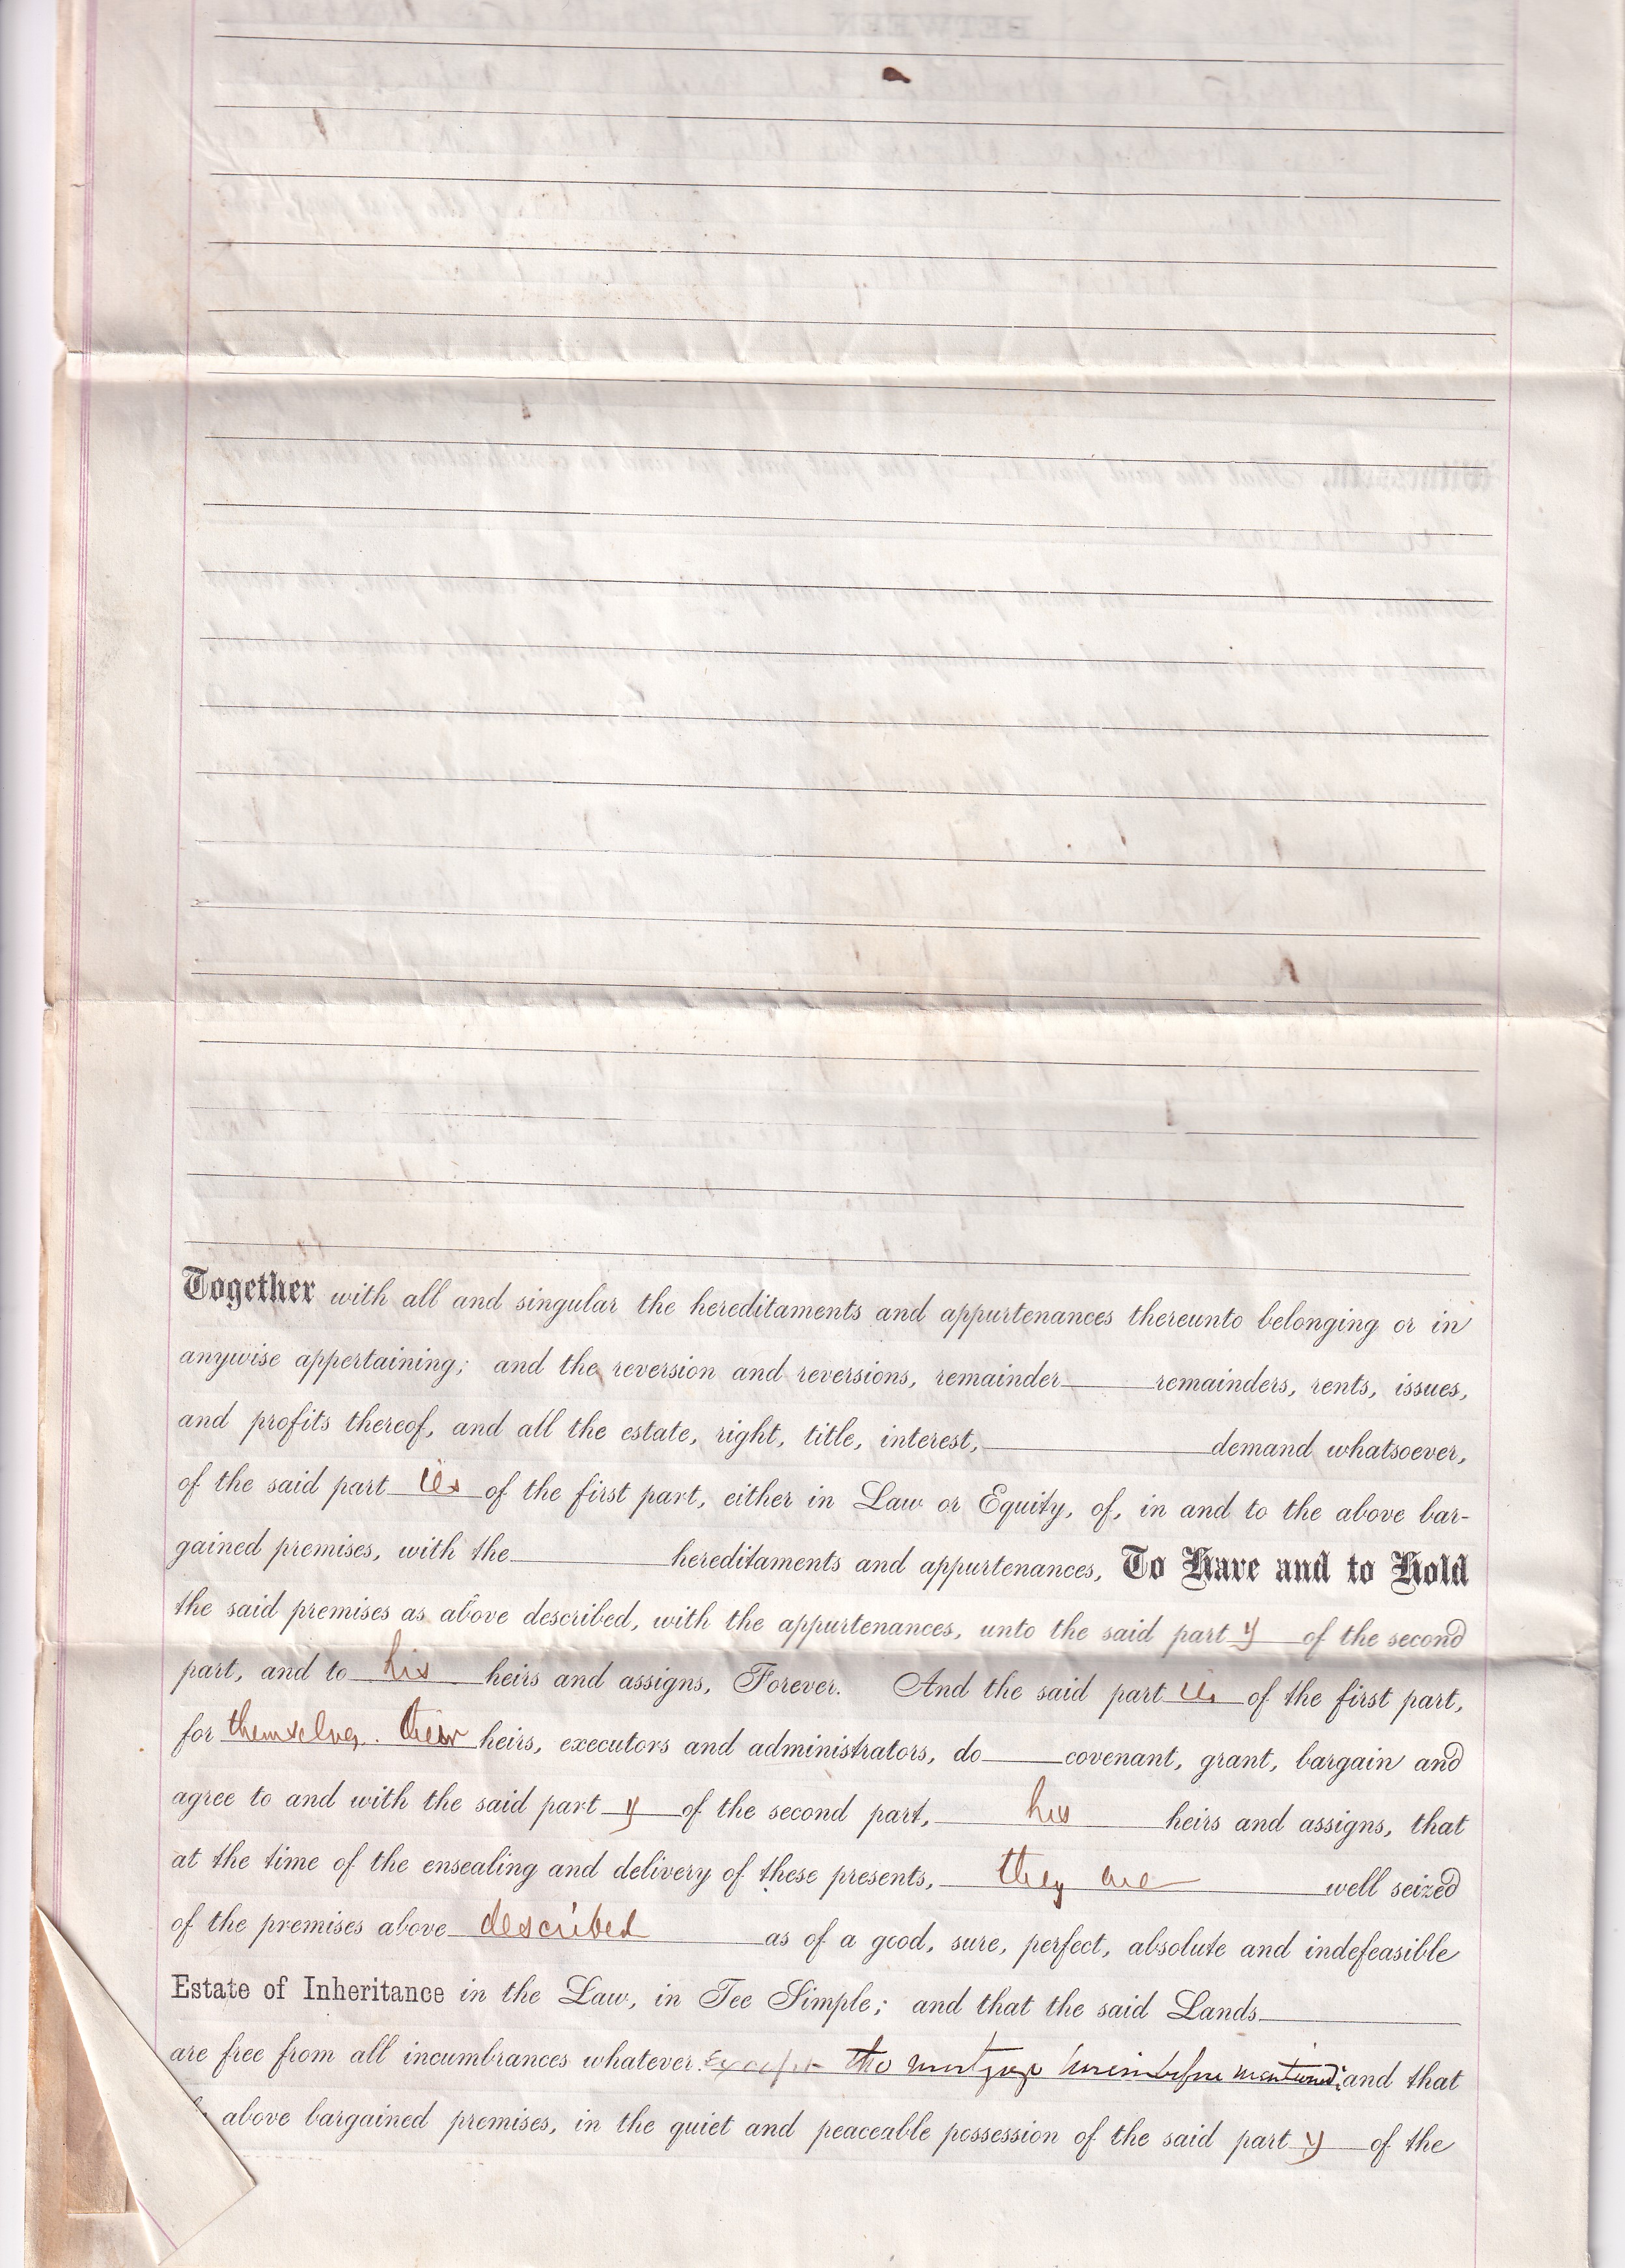 Together with all and singular the hereditaments and appurtenances thereunto belonging or in
anywise appertaining; and the reversion and reversions, remainder remainders, rents, issues,
and profits thereof, and all the estate, right, title, interest, demand whatsoever,
of the said part ies of the first part, either in Law or Equity, of, in and to the above bar-
gained premises, with the hereditaments and appurtenances, To Have and to Hold
the said premises as above described, with the appurtenances, unto the said part y of the second
part, and to his heirs and assigns, Forever. And the said part ies of the first part,
for themselves, their heirs, executors and administrators, do covenant, grant, bargain and
agree to and with the said part y of the second part, his heirs and assigns, that
at the time of the ensealing and delivery of these presents, they are well seized
of the premises above described as of a good, sure, perfect, absolute and indefeasible
Estate of Inheritance in the Law, in Fee Simple; and that the said Lands
are free from all incumbrances whatever. Except the mortgage hereinbefore mentioned; and that
above bargained premises, in the quiet and peaceable possession of the said part y of the